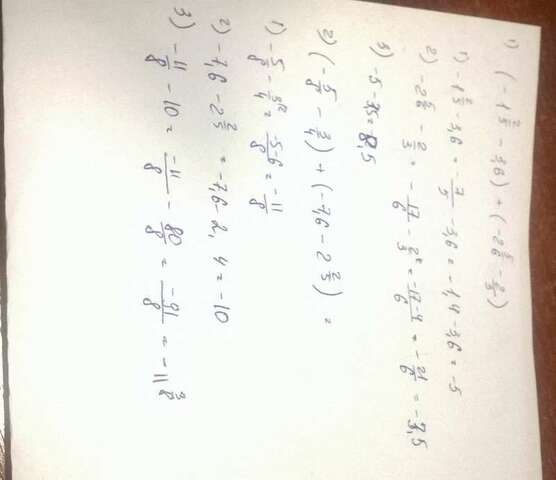 1) (-1 2/5 - 3,6) + (-2 5/6 - 2/3)
1) -1 2/5 - 3,6 = -7/5 - 3,6 = -1,4 - 3,6 = -5
2) -2 5/6 - 2/3 = -17/6 - 2/3 = -17-4/6 = -21/6 = -3,5
3) -5 - 3,5 = -8,5
2) (-5/8 - 3/4) + (-7,6 - 2 2/5) =
1) -5/8 - 3/4 = -5-6/8 = -11/8
2) -7,6 - 2 2/5 = -7,6 - 2,4 = -10
3) -11/8 - 10 = -11/8 - 80/8 = -91/8 = -11 3/8